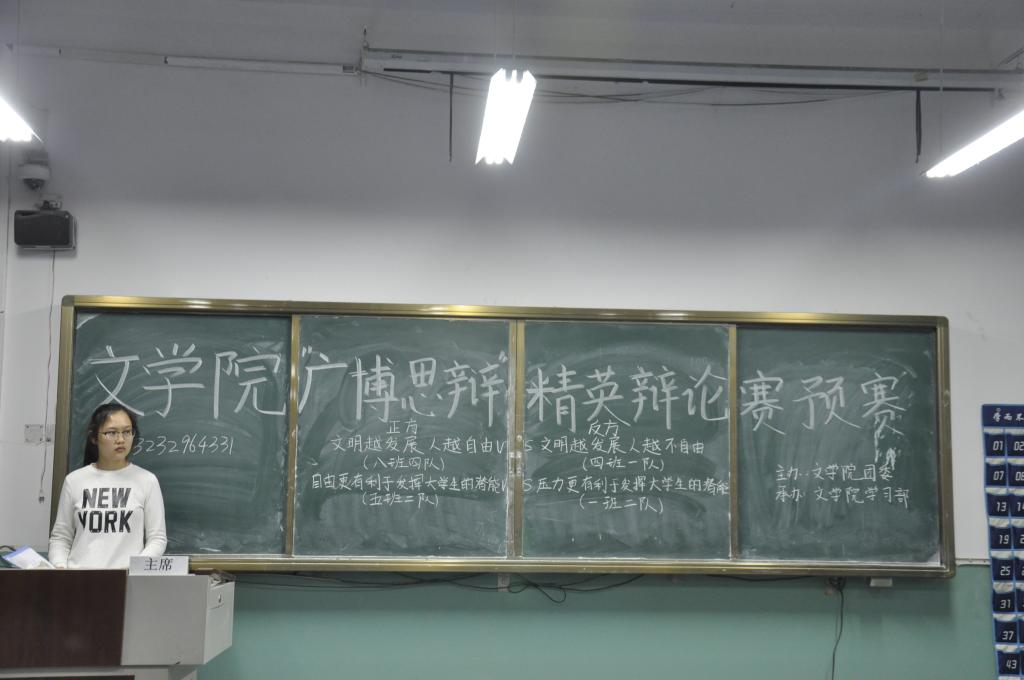 文学院“广博思辩”精英辩论赛预赛
正方
反方
3232964331
文明越发展人越自由VS文明越发展人越不自由
(八班四队)
(四班一队)
主办:文学院团委
自由更有利于发挥大学生的潜能VS压力更有利于发挥大学生的潜能
承办:文学院学习部
(五班二队)
(一班二队)
NEW
YORK
主席
01 02
07 08
13 14
19
25
31
37
43